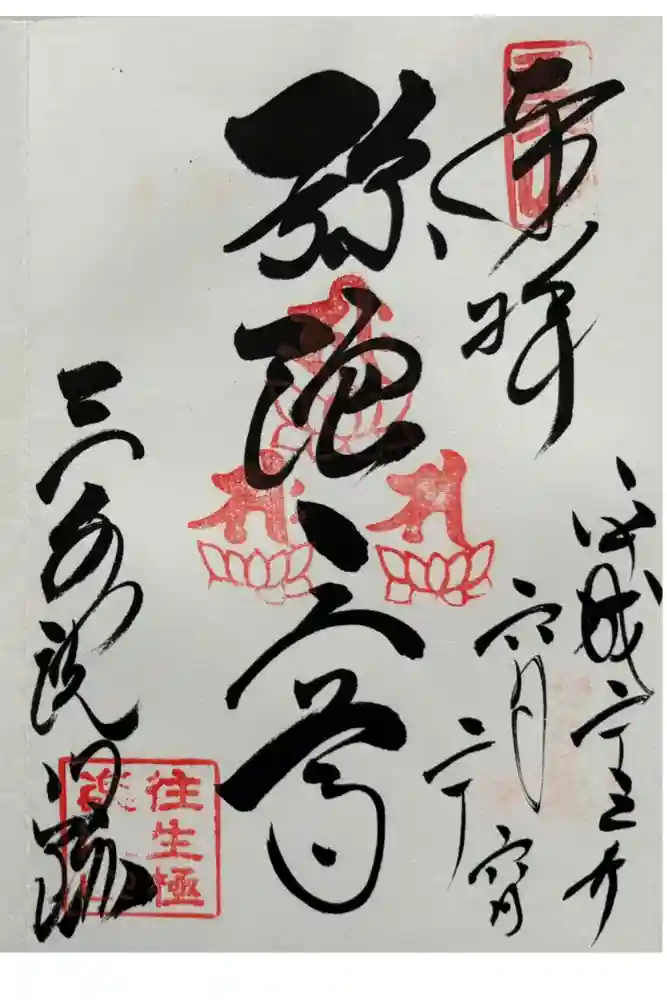 奉拝
平成二十五年
六月
二十六日
弥陀三尊
三千院門跡
往生極